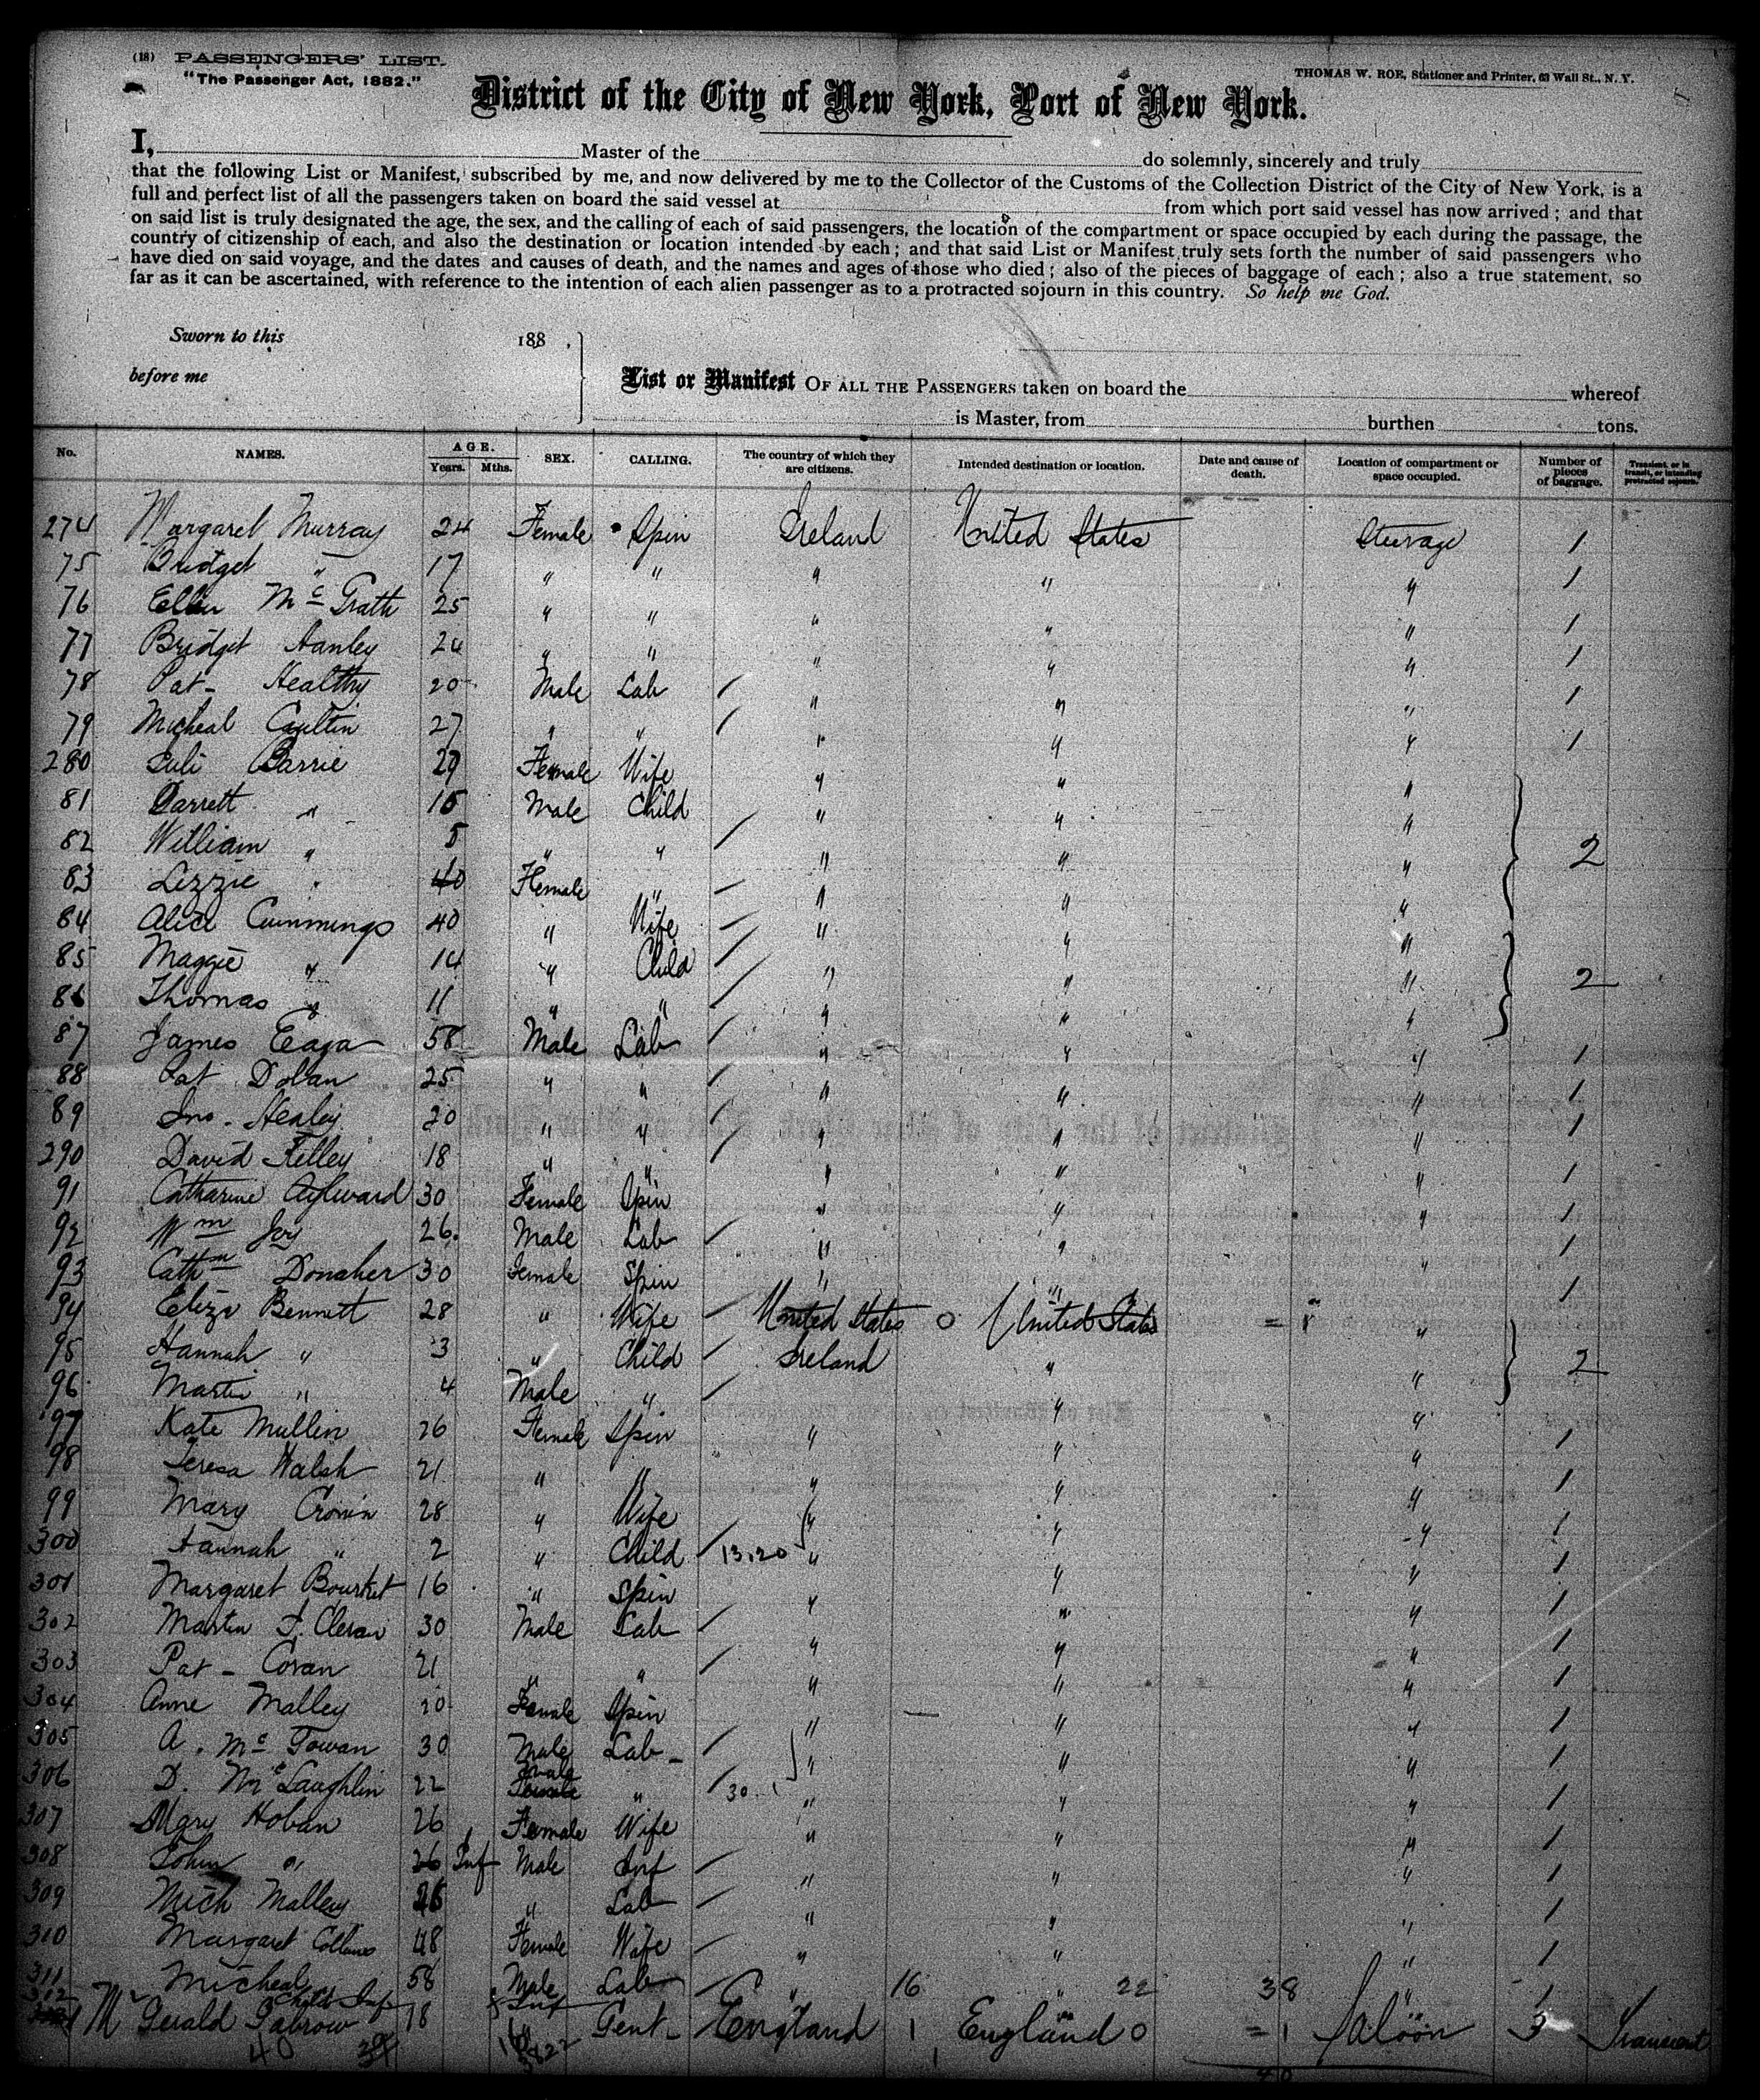 (18) PASSENGERS' LIST.
"The Passenger Act, 1882."
THOMAS W. ROE, Stationer and Printer, 63 Wall St., N. Y.
District of the City of New York, Port of New York.
I, Master of the do solemnly, sincerely and truly
that the following List or Manifest, subscribed by me, and now delivered by me to the Collector of the Customs of the Collection District of the City of New York, is a
full and perfect list of all the passengers taken on board the said vessel at from which port said vessel has now arrived; and that
on said list is truly designated the age, the sex, and the calling of each of said passengers, the location of the compartment or space occupied by each during the passage, the
country of citizenship of each, and also the destination or location intended by each; and that said List or Manifest truly sets forth the number of said passengers who
have died on said voyage, and the dates and causes of death, and the names and ages of those who died; also of the pieces of baggage of each; also a true statement, so
far as it can be ascertained, with reference to the intention of each alien passenger as to a protracted sojourn in this country. So help me God.
Sworn to this 188 .
before me
List or Manifest OF ALL THE PASSENGERS taken on board the whereof
is Master, from burthen tons.
No. NAMES. AGE. Years. Mths. SEX. CALLING. The country of which they are citizens. Intended destination or location. Date and cause of death. Location of compartment or space occupied. Number of pieces of baggage. Transient, or in transit, or intending protracted sojourn.
274 Margaret Murray 24 Female Spin Ireland United States Steerage 1
75 Bridget " 17 " " " " " 1
76 Ellen McGrath 25 " " " " " 1
77 Bridget Hanley 24 " " " " " 1
78 Pat- Healthy 20 Male Lab " " " 1
79 Micheal Caultin 27 " " " " " 1
280 Barrie 29 Female Wife " " "
81 Garrett " 15 Male Child " " "
82 William " 5 " " " " " 2
83 Lizzie " Female " " " "
84 Alice Cummings 40 " Wife " " "
85 Maggie " 14 " Child " " " 2
86 Thomas " 11 " " " " "
87 James 58 Male Lab " " " 1
88 Pat Dolan 25 " " " " " 1
89 Jno. Healey 20 " " " " " 1
290 David Kelley 18 " " " " " 1
91 Catharine Aylward 30 Female Spin " " " 1
92 Wm Joy 26. Male Lab " " " 1
93 Cathn Donaher 30 Female Spin " " " 1
94 Eliza Bennett 28 " Wife United States O United States = 1 "
95 Hannah " 3 " Child Ireland " " 2
96 Martin " 4 Male " " "
97 Kate Mullin 26 Female Spin " " " 1
98 Teresa Walsh 21 " " " " " 1
99 Mary Cronin 28 " Wife " " " 1
300 Hannah " 2 " Child 13.20 " " " 1
301 Margaret 16 " Spin " " " 1
302 Martin 30 Male Lab " " " 1
303 Pat - Coran 21 " " " " " 1
304 Anne Malley 20 Female Spin " " " 1
305 A. McGowan 30 Male Lab " " " 1
306 D. McLaughlin 22 Male " 30 " " " 1
307 Mary Hoban 26 Female Wife " " " 1
308 John " Inf Male Inf " " " 1
309 Mich Malley 26 " Lab " " " 1
310 Margaret Collins 48 Female Wife " " " 1
311 Micheal 58 Male Lab " 16 " 22 38 " 1
312 Child Inf Inf
Mr Gerald 18 " Gent England 1 England 0 = 1 Saloon 3 Transient
40
40